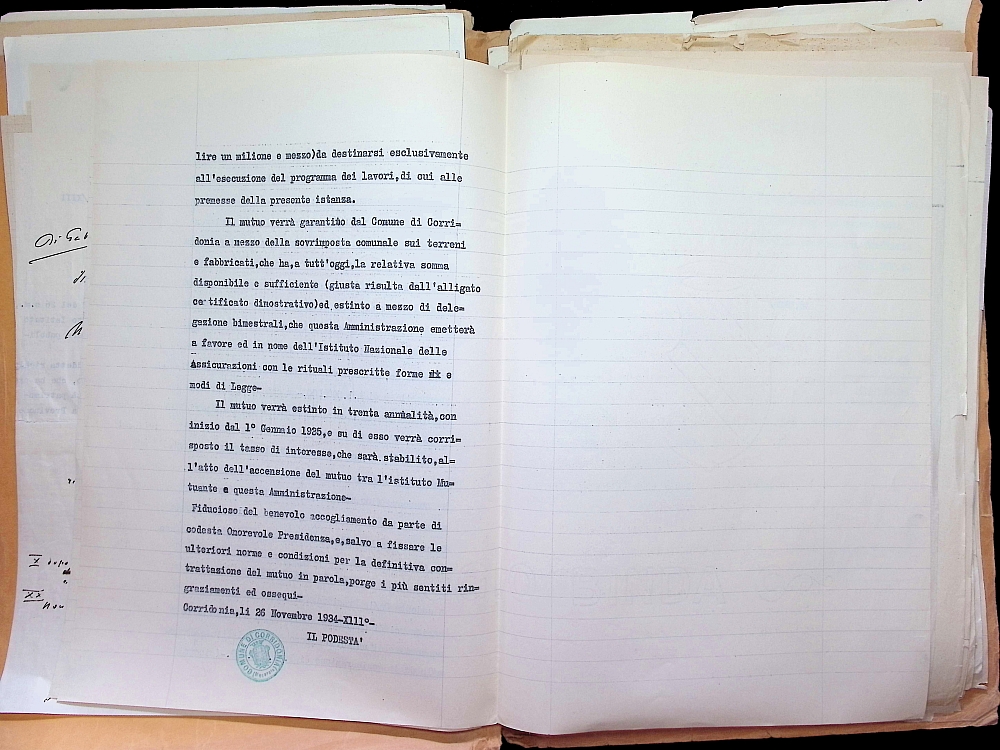 lire un milione e mezzo)da destinarsi esclusivamente
all'esecuzione del programma dei lavori,di cui alle
premesse della presente istanza.
Il mutuo verrà garantito dal Comune di Corri=
donia a mezzo della sovrimposta comunale sui terreni
e fabbricati,che ha,a tutt'oggi,la relativa somma
disponibile e sufficiente (giusta risulta dall'alligato
certificato dimostrativo)ed estinto a mezzo di dele=
gazione bimestrali,che questa Amministrazione emetterà
a favore ed in nome dell'Istituto Nazionale delle
Assicurazioni con le rituali prescritte forme e
modi di Legge-
Il mutuo verrà estinto in trenta annualità,con
inizio dal 1° Gennaio 1935,e su di esso verrà corri=
sposto il tasso di interesse,che sarà stabilito,al=
l'atto dell'accensione del mutuo tra l'istituto Mu=
tuante e questa Amministrazione-
Fiducioso del benevolo accogliamento da parte di
codesta Onorevole Presidenza,e,salvo a fissare le
ulteriori norme e condizioni per la definitiva con=
trattazione del mutuo in parola,porge i più sentiti rin=
graziamenti ed ossequi-
Corridonia,li 26 Novembre 1934-XIII°-
IL PODESTA'
COMUNE DI CORRIDONIA